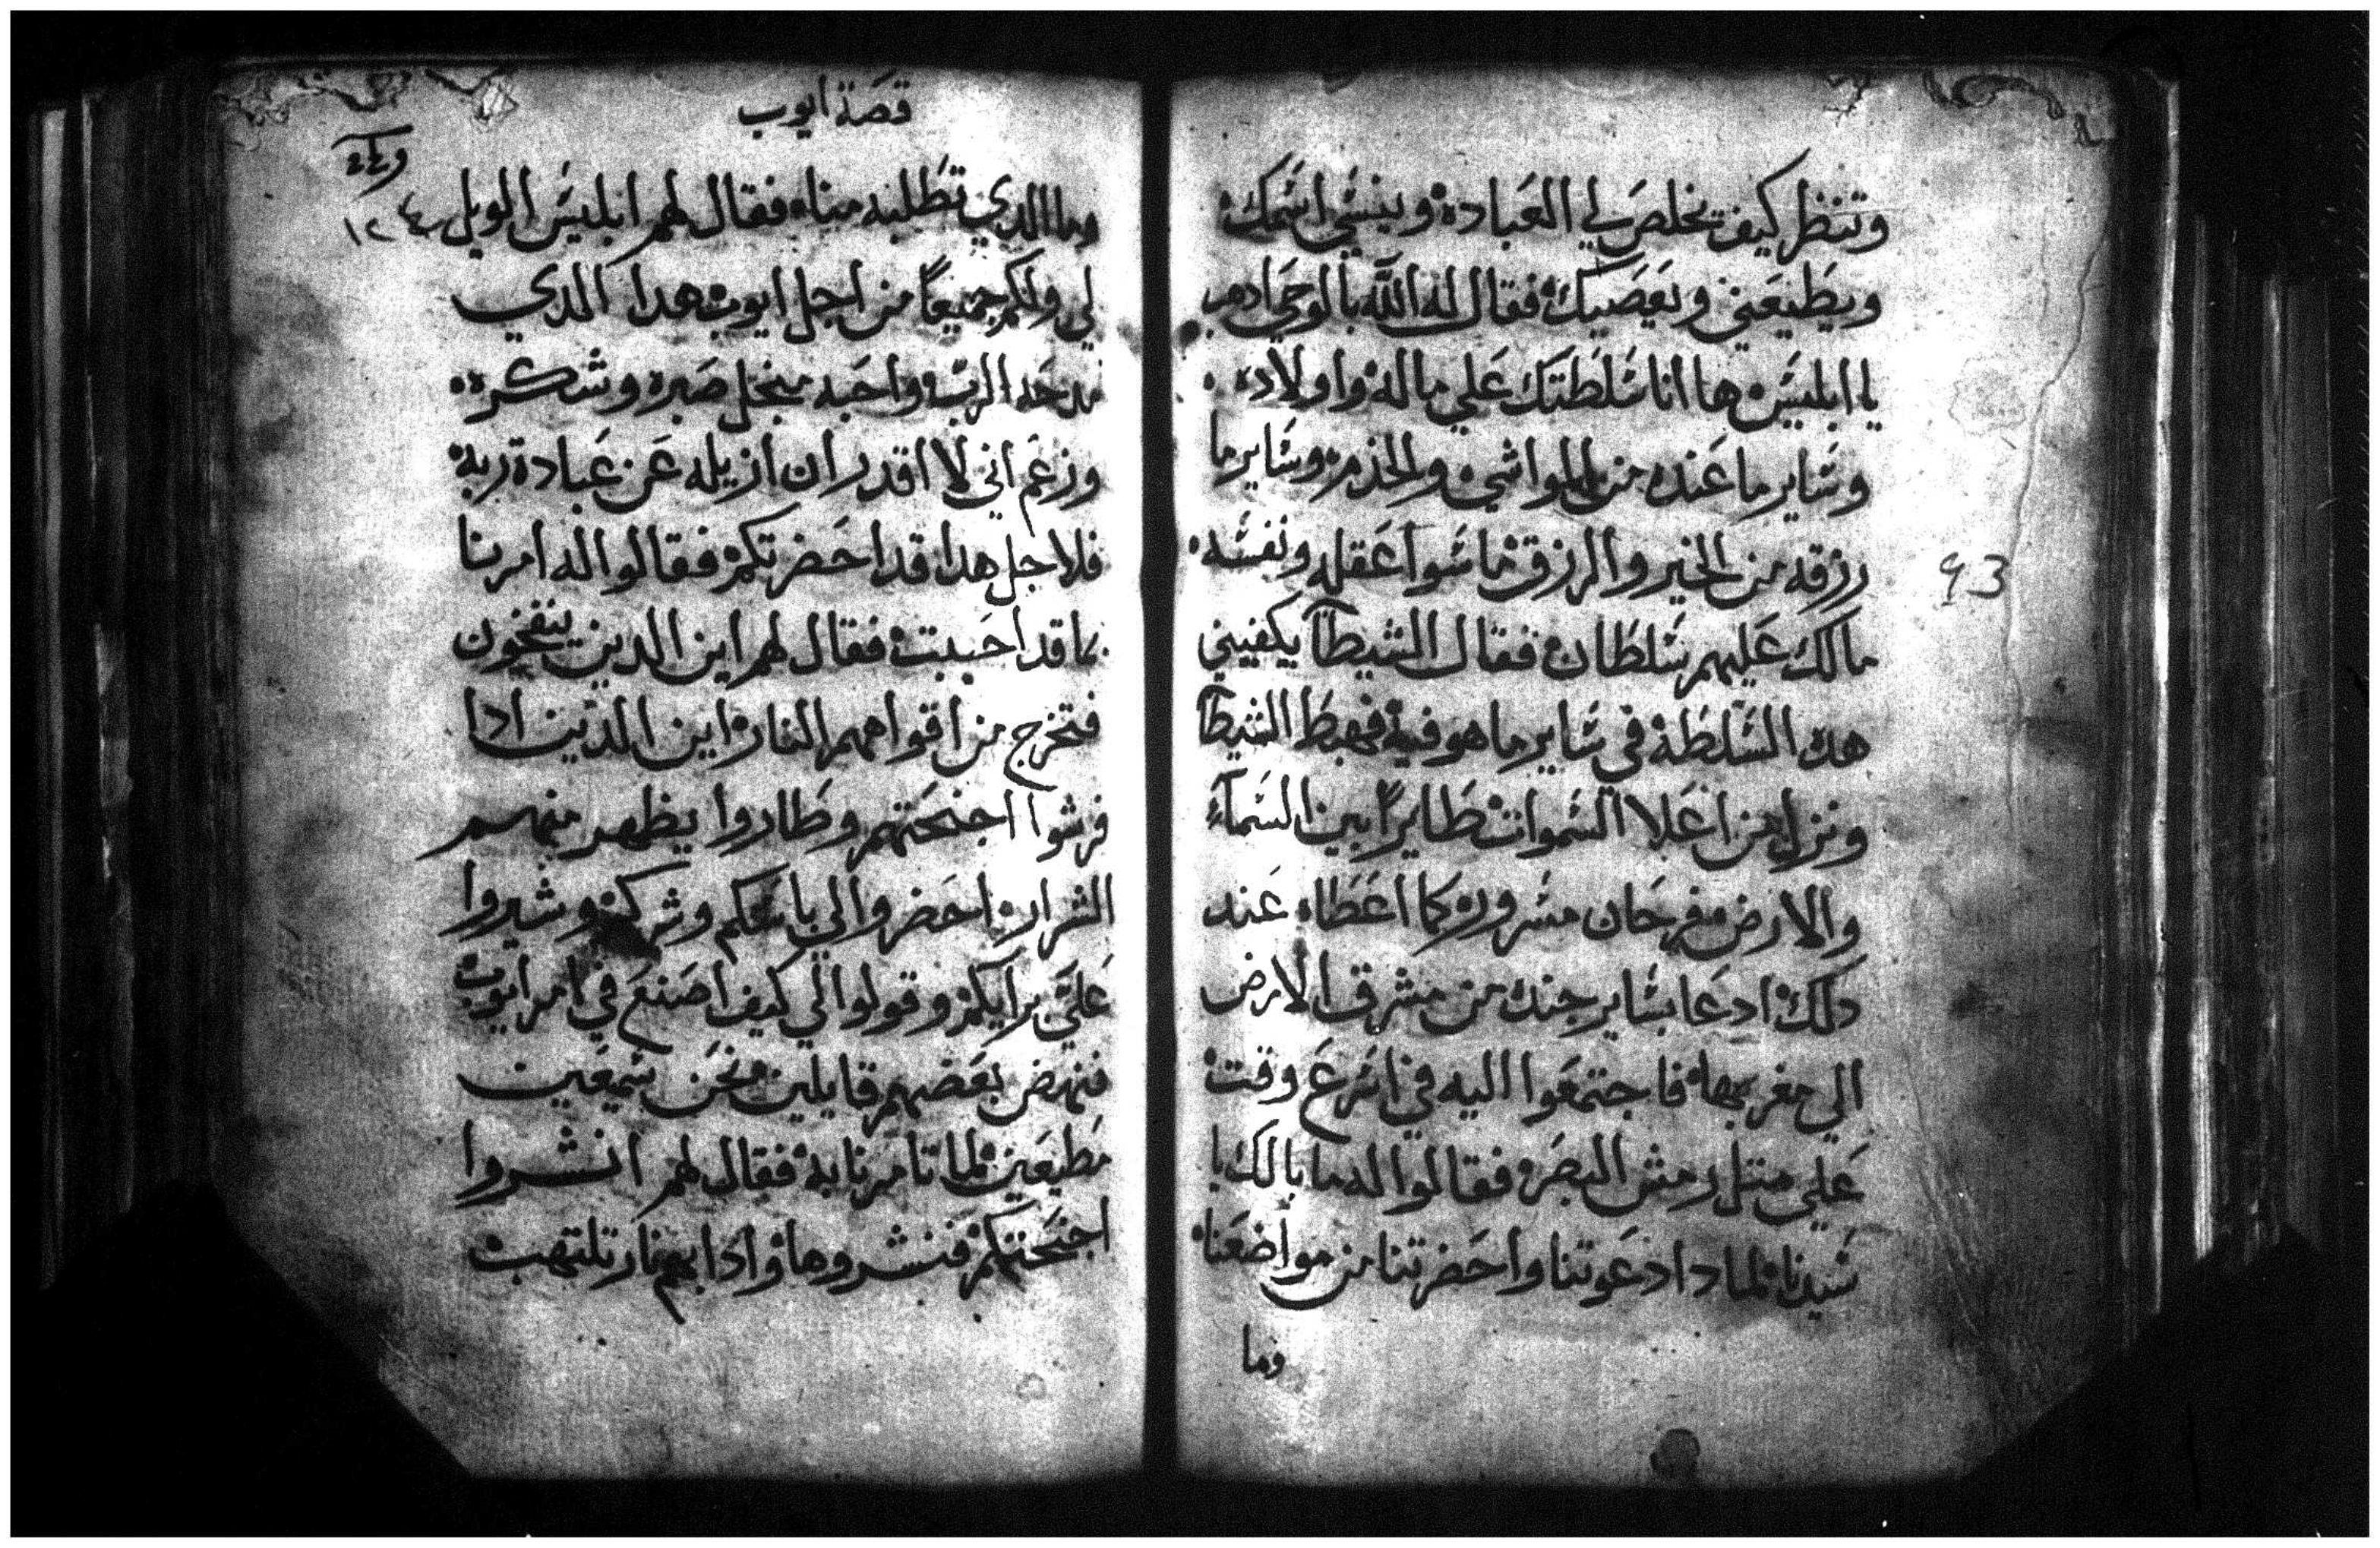 وتنظر كيف يخلص لي العباده وينسي اسمك
ويطيعني ويعصيك فقال له الله بالوحي ادهب
يا ابليس ها انا سلطتك علي ماله واولاده
وساير ما عنده من المواشي والخدم وساير ما
رزقه من الخير والرزق ما سوا عقله ونفسه
مالك عليهم سلطان فقال الشيطآ يكفيني
هده السلطة في ساير ما هو فيه فهبط الشيطآ
ونزل من اعلا السموات طايراً بين السمآء
والارض مفرحان مسرور كما اعطاه عند
دلك ادعا بساير جنده من مشرق الارض
الي مغربها فاجتمعوا اليه في اسرع وقت
علي متل رمش البصر فقالوا له ما بالك يا
سيدنا لمادا دعوتنا واحضرتنا من مواضعنا
وما
93
قصة ايوب
وما الدي تطلبه منا فقال لهم ابليس الويل
لي ولكم جميعاً من اجل ايوب هدا الدي
مدحه الرب واحبه منجل صبره وشكره
وزعم اني لا اقدر ان ازيله عن عبادة ربه
فلاجل هدا قد احضرتكم فقالوا له امرنا
بما قد احببت فقال لهم اين الدين ينفخون
فتخرج من افواههم النار اين الدين ادا
فرشوا اجنحتهم وطاروا يظهر منهم
الشرار احضروا الي باسكم وشركم وشيروا
علي برايكم وقولوا لي كيف اصنع في امر ايوب
فنهض بعضهم قايلين نحن سميعين
مطيعين لما تامرنا به فقال لهم انشروا
اجنحتكم فنشروها وادا بهم نار تلتهب